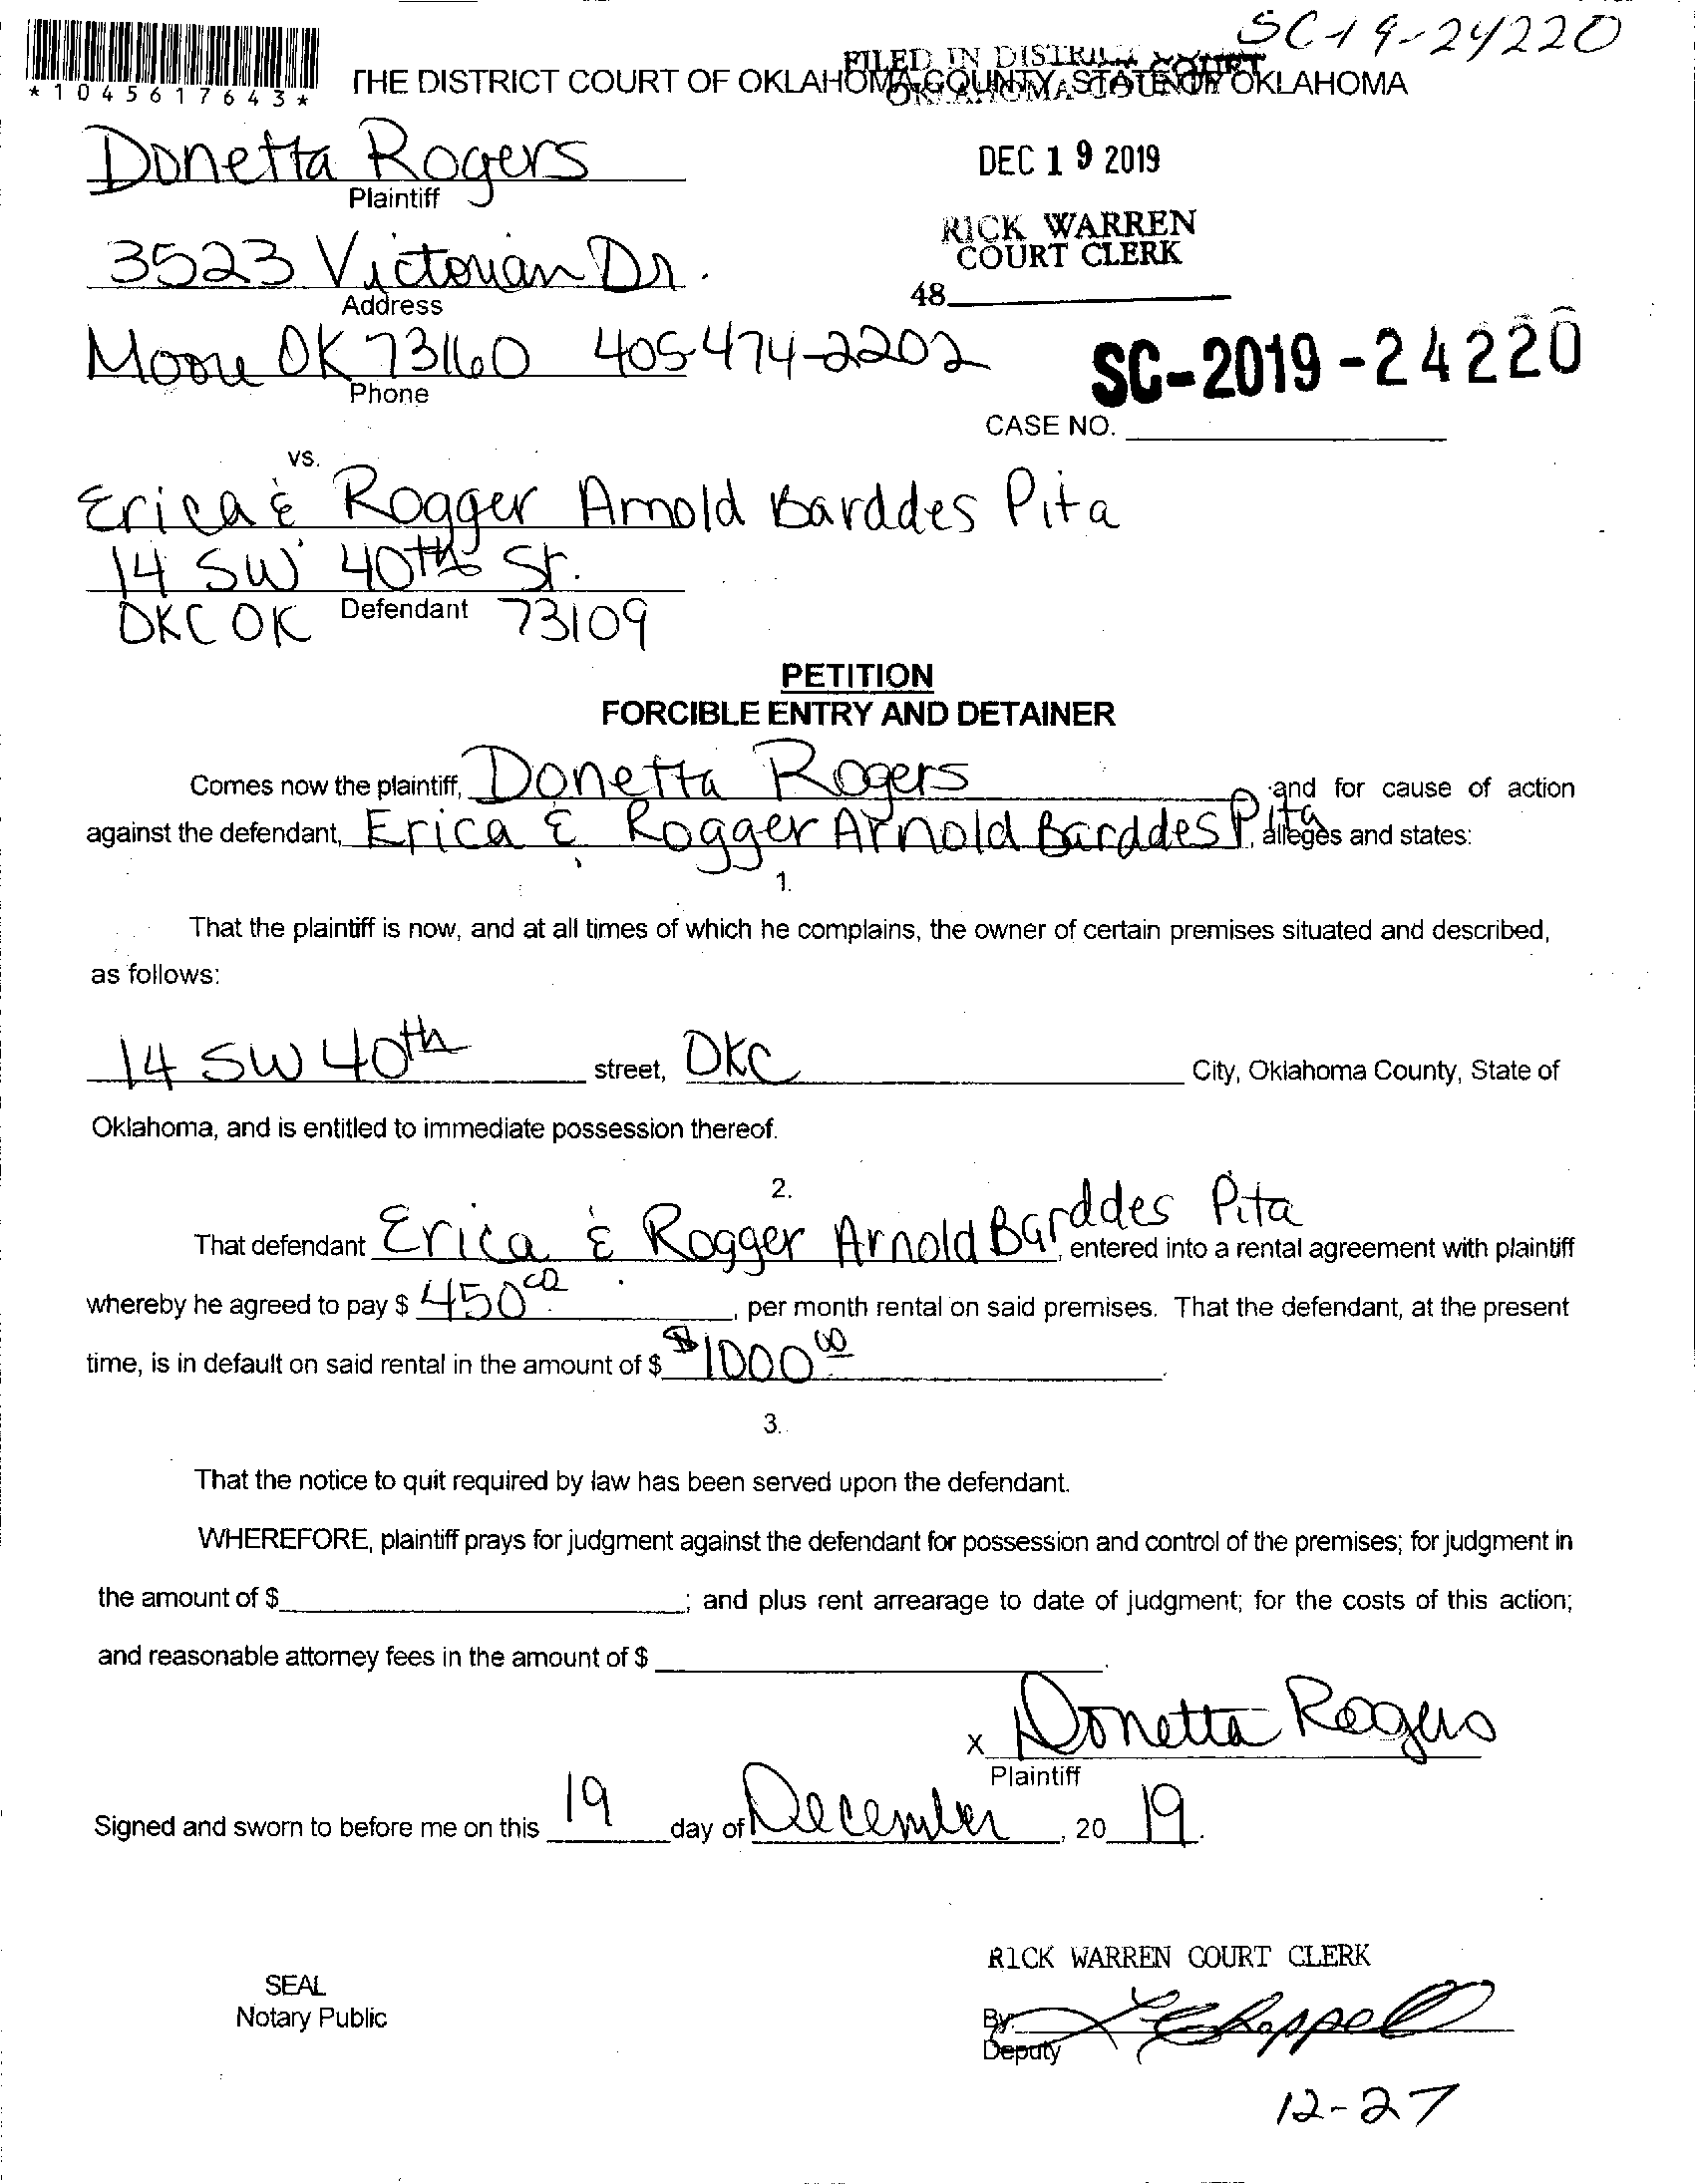 SC-19-24220
*1045617643*
FILED IN DISTRICT COURT
THE DISTRICT COURT OF OKLAHOMA COUNTY, STATE OF OKLAHOMA
Donetta Rogers
DEC 19 2019
Plaintiff
RICK WARREN
COURT CLERK
3523 Victorian Dr.
Address
48
Moore OK 73160 405-474-2202
SC-2019-24220
Phone
CASE NO.
vs.
Erica & Rogger Arnold Barddes Pita
14 SW 40th St.
Defendant
OKC OK 73109
PETITION
FORCIBLE ENTRY AND DETAINER
Comes now the plaintiff, Donetta Rogers and for cause of action
against the defendant, Erica & Rogger Arnold Barddes Pita, alleges and states:
1.
That the plaintiff is now, and at all times of which he complains, the owner of certain premises situated and described,
as follows:
14 SW 40th street, OKC City, Oklahoma County, State of
Oklahoma, and is entitled to immediate possession thereof.
2.
That defendant Erica & Rogger Arnold Barddes Pita, entered into a rental agreement with plaintiff
whereby he agreed to pay $ 450.00, per month rental on said premises. That the defendant, at the present
time, is in default on said rental in the amount of $ $1000.00.
3.
That the notice to quit required by law has been served upon the defendant.
WHEREFORE, plaintiff prays for judgment against the defendant for possession and control of the premises; for judgment in
the amount of $ ; and plus rent arrearage to date of judgment; for the costs of this action;
and reasonable attorney fees in the amount of $ .
x Donetta Rogers
Plaintiff
Signed and sworn to before me on this 19 day of December, 20 19.
RICK WARREN COURT CLERK
SEAL
Notary Public
By: Chappell
Deputy
12-27